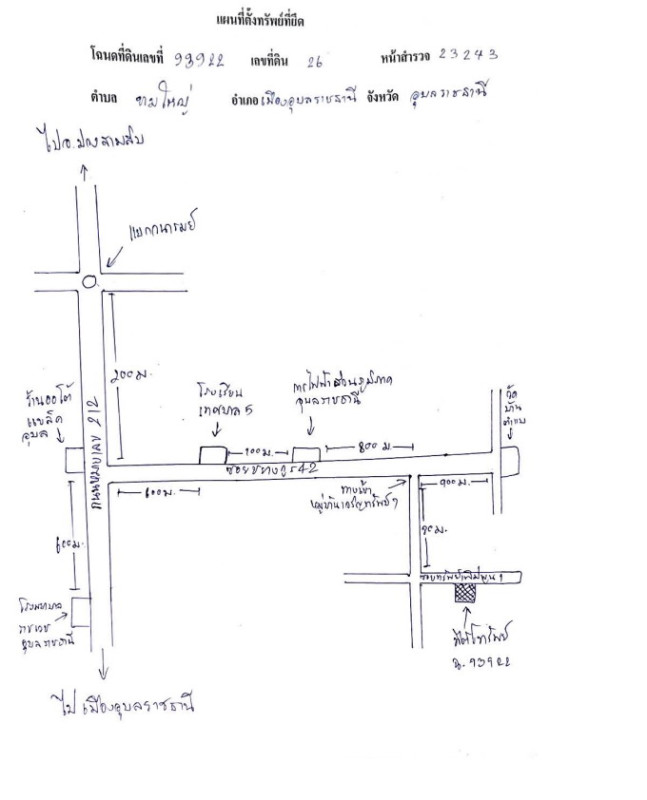 แผนที่ตั้งทรัพย์ที่ยึด
โฉนดที่ดินเลขที่ 93922 เลขที่ดิน 26 หน้าสำรวจ 23243
ตำบล ขามใหญ่ อำเภอ เมืองอุบลราชธานี จังหวัด อุบลราชธานี
ไป อ.ม่วงสามสิบ
แยกวนารมย์
200 ม.
ร้านออโต้
อุบล
โรงเรียน
เทศบาล 5
การไฟฟ้าส่วนภูมิภาค
อุบลราชธานี
วัด
บ้าน
ถนนหมายเลข 212
100 ม.
800 ม.
ซอยชยางกูร 42
600 ม.
ทางเข้า
หมู่บ้านเจริญทรัพย์ 1
900 ม.
600 ม.
90 ม.
ซอยทรัพย์เพิ่มพูน 1
โรงพยาบาล
ราชเวช
อุบลราชธานี
ที่ตั้งทรัพย์
ฉ. 93922
ไป เมืองอุบลราชธานี